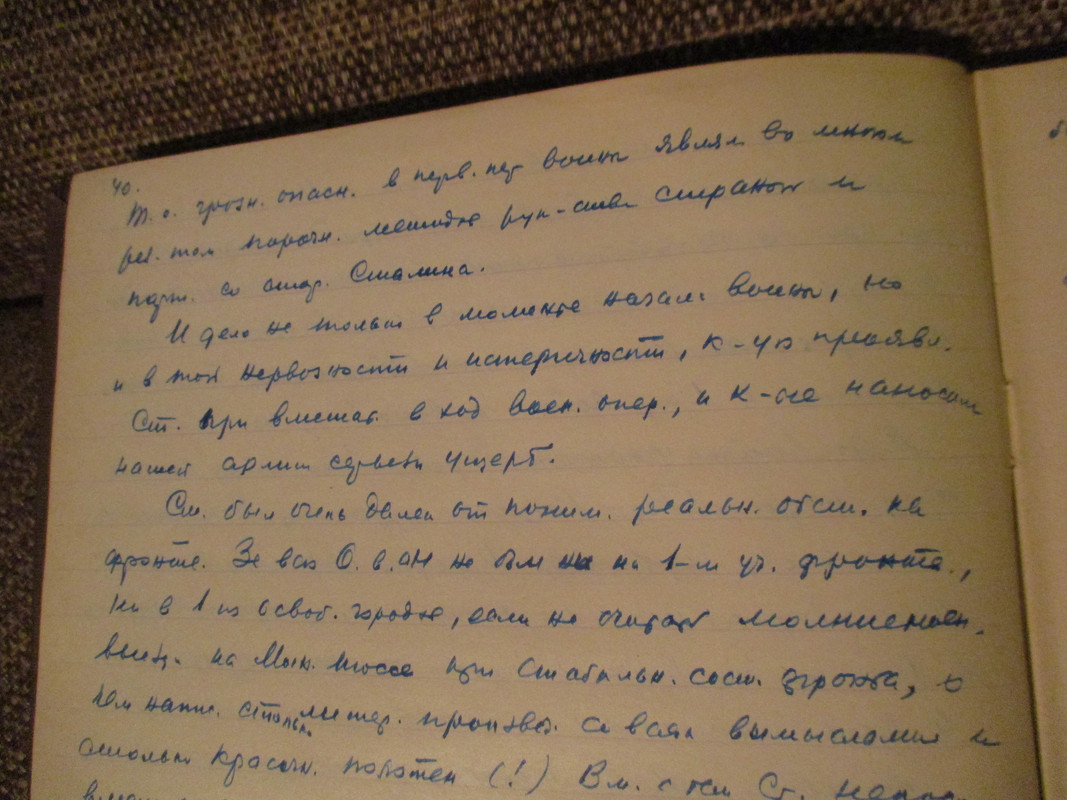 40.
Т. о. грозн. опасн. в перв. пер войны являл во многом
рез. том порочн. методов рук-ства страной и
парт. со стор. Сталина.
И дело не только в моменте начала войны, но
и в той нервозности и истеричности, к-ую проявл.
Ст. при вмешат. в ход воен. опер., и к-ые наносили
нашей армии серьезн ущерб.
Ст. был очень далек от поним. реальн. обст. на
фронте. За всю О. в. он не был ни на 1-м уч. фронта.,
ни в 1 из освоб. городов, если не считать молниеносн.
выезд. на Мож. шоссе при стабильн. сост. фронта, о
чем напис. столько литер. произвед. со всяк вымыслами и
столько красочн. полотен (!) Вм. с тем Ст. непоср